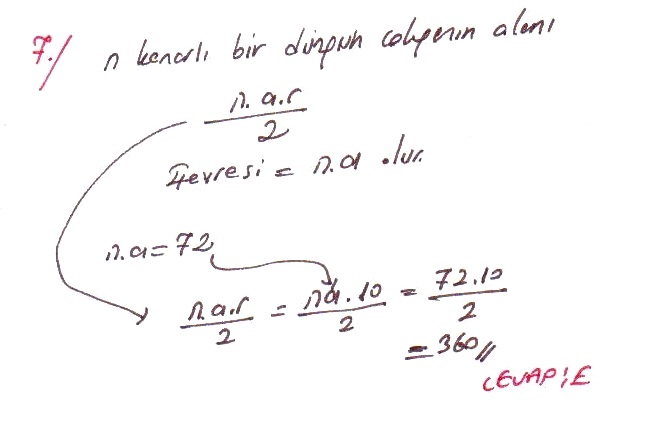 7./ n kenarlı bir düzgün çokgenin alanı
n.a.r
2
Çevresi = n.a olur.
n.a=72
n.a.r = na.10 = 72.10
2 2 2
= 360//
CEVAP:E